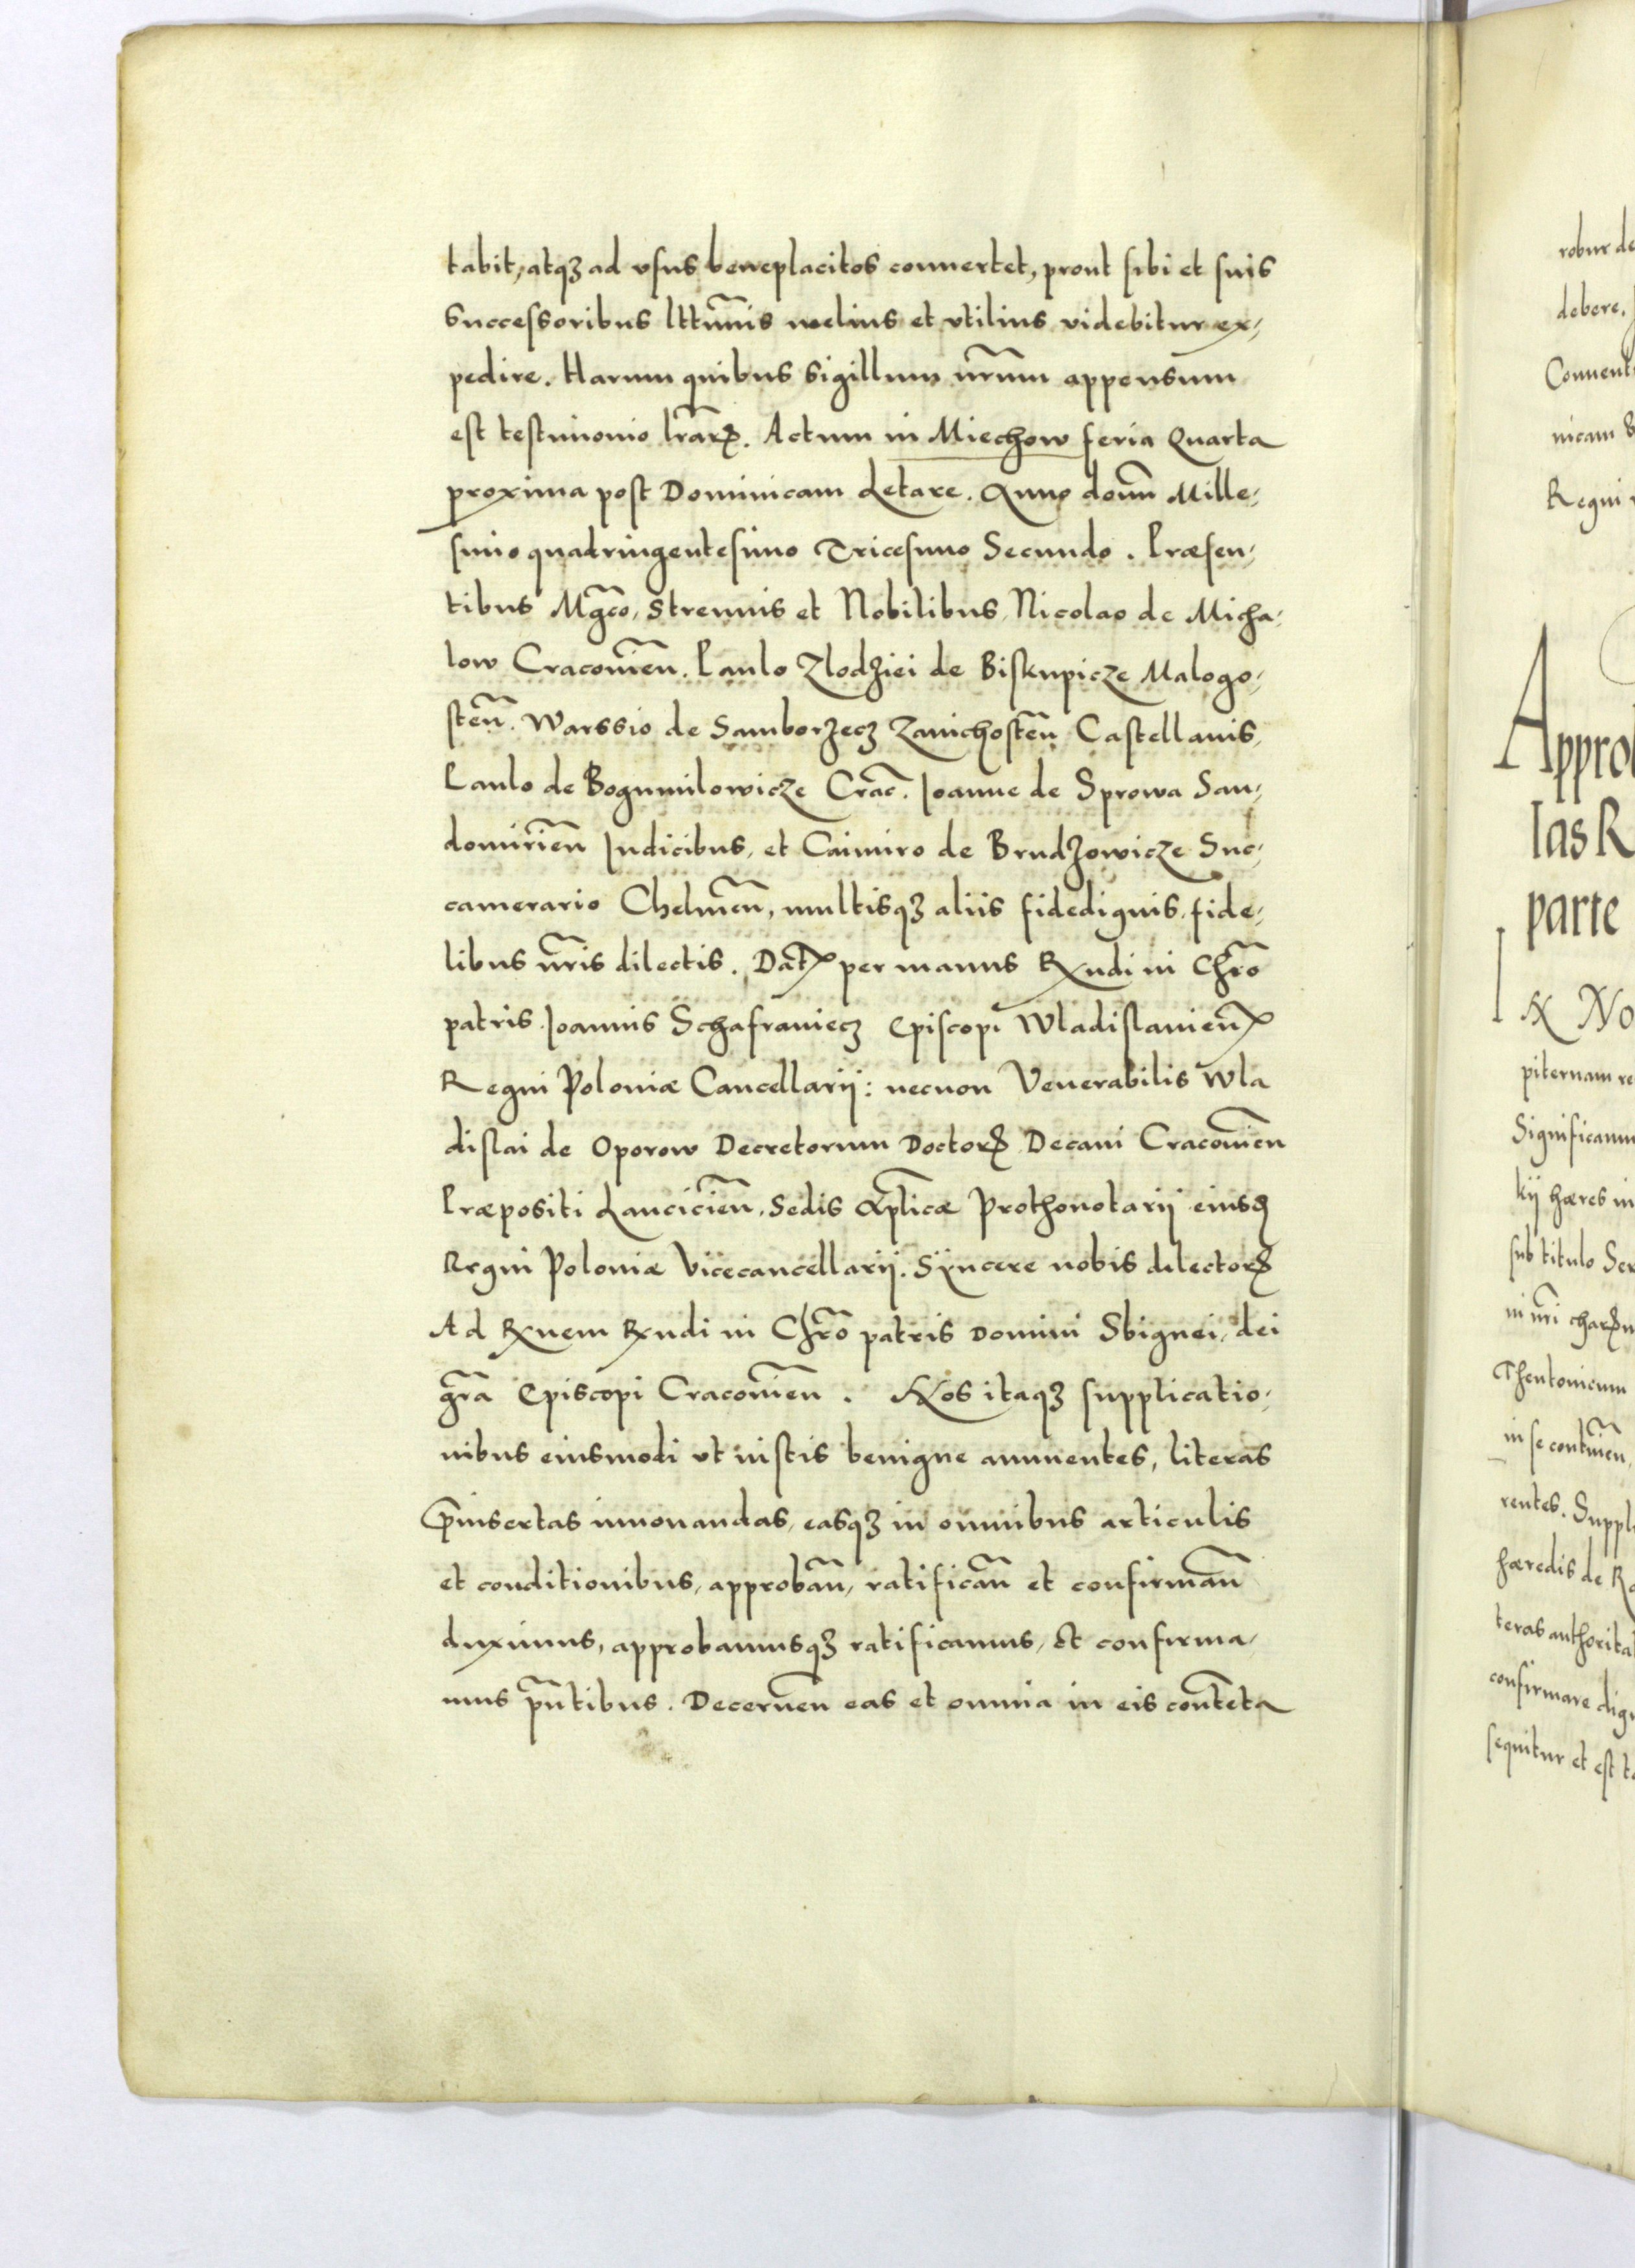 tabit, atqꝫ ad vsus beneplacitos conuertet, prout sibi et suis
Successoribus lttim̃is melius et vtilius videbitur ex-
pedire. Harum quibus Sigillum nr̃um appensum
est testimonio lr̃arꝝ. Actum in Miechow feria Quarta
proxima post Dominicam Letare. Anno domĩ Mille-
simo quadringentesimo Tricesimo Secundo. Præsen-
tibus Mgc̃o, Strennis et Nobilibus, Nicolao de Micha-
low Cracovien̄. Paulo Zlodziei de Biskupicze Malogo-
sten̄. Warssio de Samborzecz Zawichosten̄ Castellanis,
Paulo de Bogumilowicze Crac̄. Joanne de Sprowa San-
domirien̄ Judicibus, et Caimiro de Brudzowicze Suc-
camerario Chelmen̄, multisqꝫ aliis fidedignis, fide-
libus nr̃is dilectis. Dat̃ per manus Rxndi in Chr̃o
patris Joannis Schafraniecz Episcopi Wladislauien̄
Regni Poloniæ Cancellarij: necnon Venerabilis Wla
dislai de Oporow Decretorum Doctorꝝ Decani Cracouien̄
Præpositi Lancicien̄, Sedis Aplicæ Prothonotarij eiusd
Regni Poloniæ Vicecancellarij. Syncere nobis dilectorꝝ
Ad Rxnem Rxndi in Chr̃o patris Domini Sbignei, dei
gr̃a Episcopi Cracouien̄. Nos itaqꝫ supplicatio-
nibus eiusmodi vt iustis benigne annuentes, literas
p̄insertas innouandas, easqꝫ in omnibus articulis
et conditionibus, approban̄, ratifican̄ et confirman̄
duximus, approbamusqꝫ ratificamus, et confirma-
mus pñtibus. Decernen̄ eas et omnia in eis conteñta
robur de
debere,
Conuent
nicam
Regni
Appro
las R
parte
No
piternam re
Significamu
kij hæres in
sub titulo Ser
in nr̃i charꝝ
Theutonicum
in se contin̄en,
rentes. Suppl
hæredis de R
teras authorita
confirmare dig
sequitur et est t